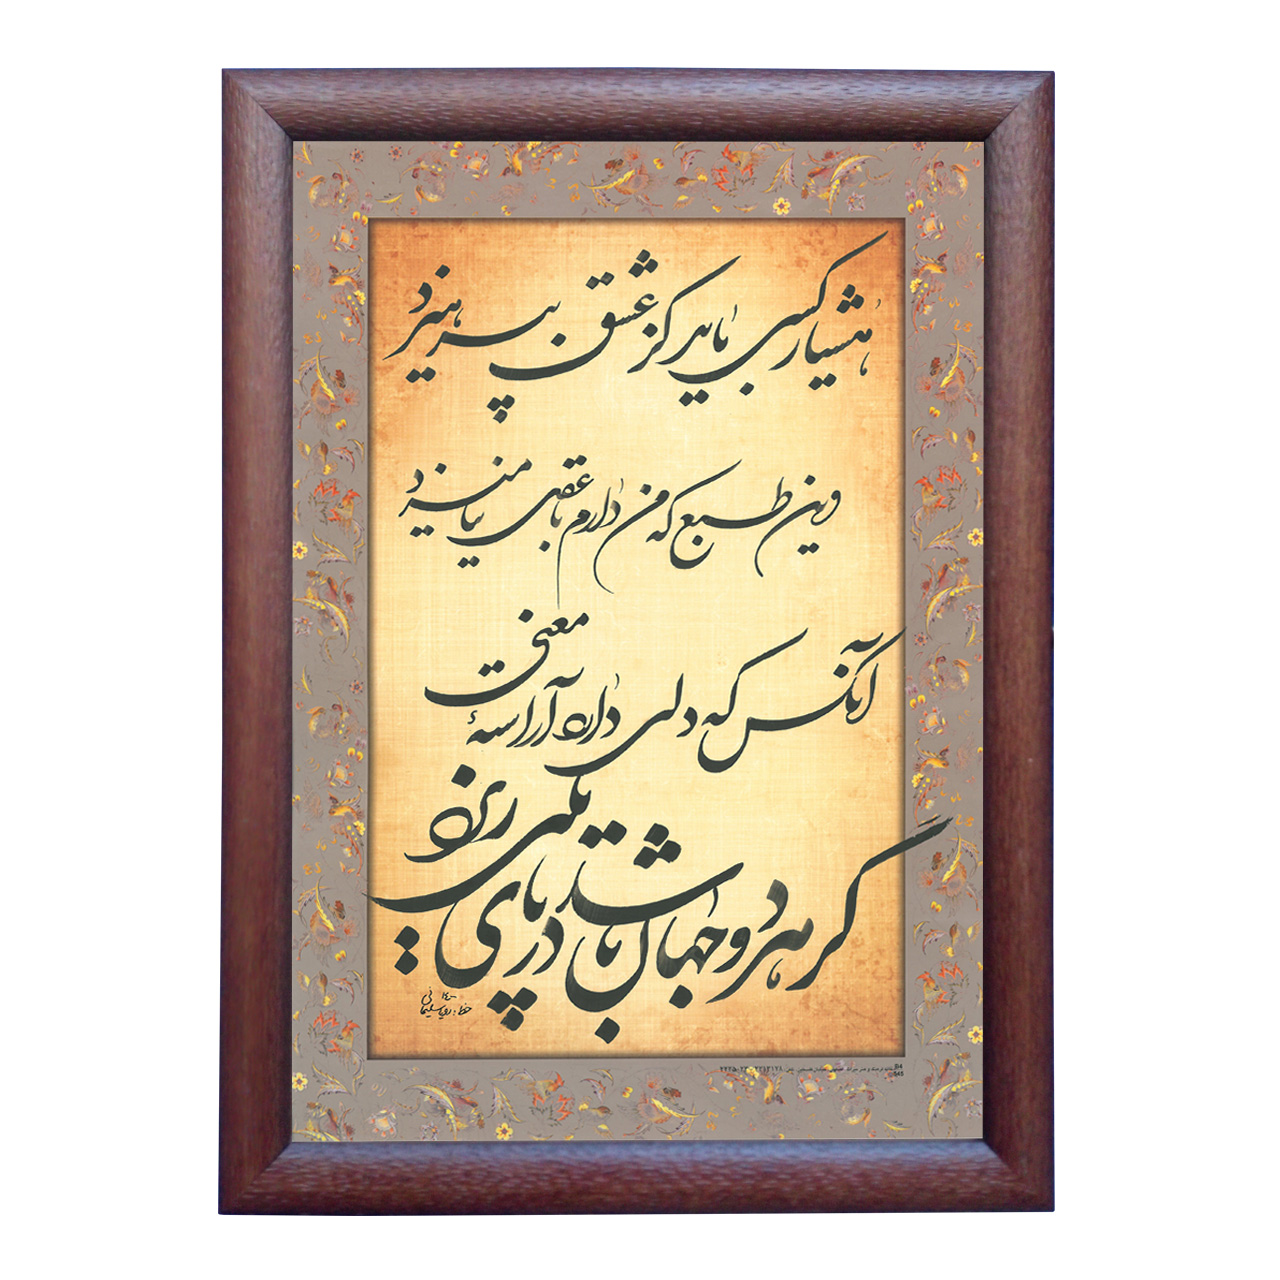 هُشیار کسی باید کز عشق بپرهیزد
وین طبع که من دارم با عقل نیامیزد
آنکس که دلی دارد آراستهٔ معنی
گر هر دو جهان باشد در پای یکی ریزد
۱۴۰۰
خط: رویا سلیمانی
B4